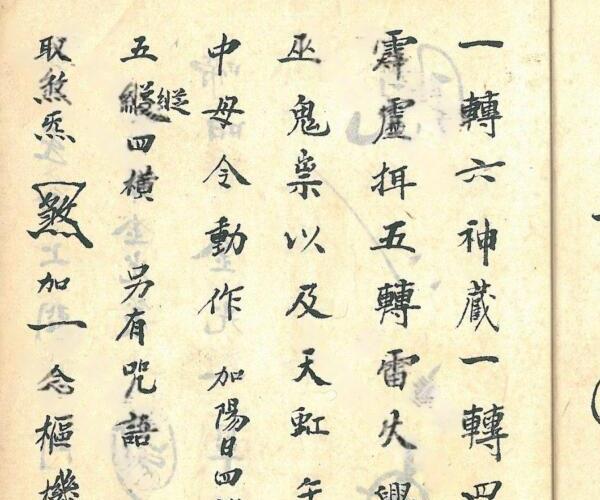 一轉六神藏一轉四
霹靂揖五轉雷火
巫鬼祟以及天虹
中毋令動作 加陽日四
五縱縱四橫 另有咒語
取煞炁 煞 加一念樞機